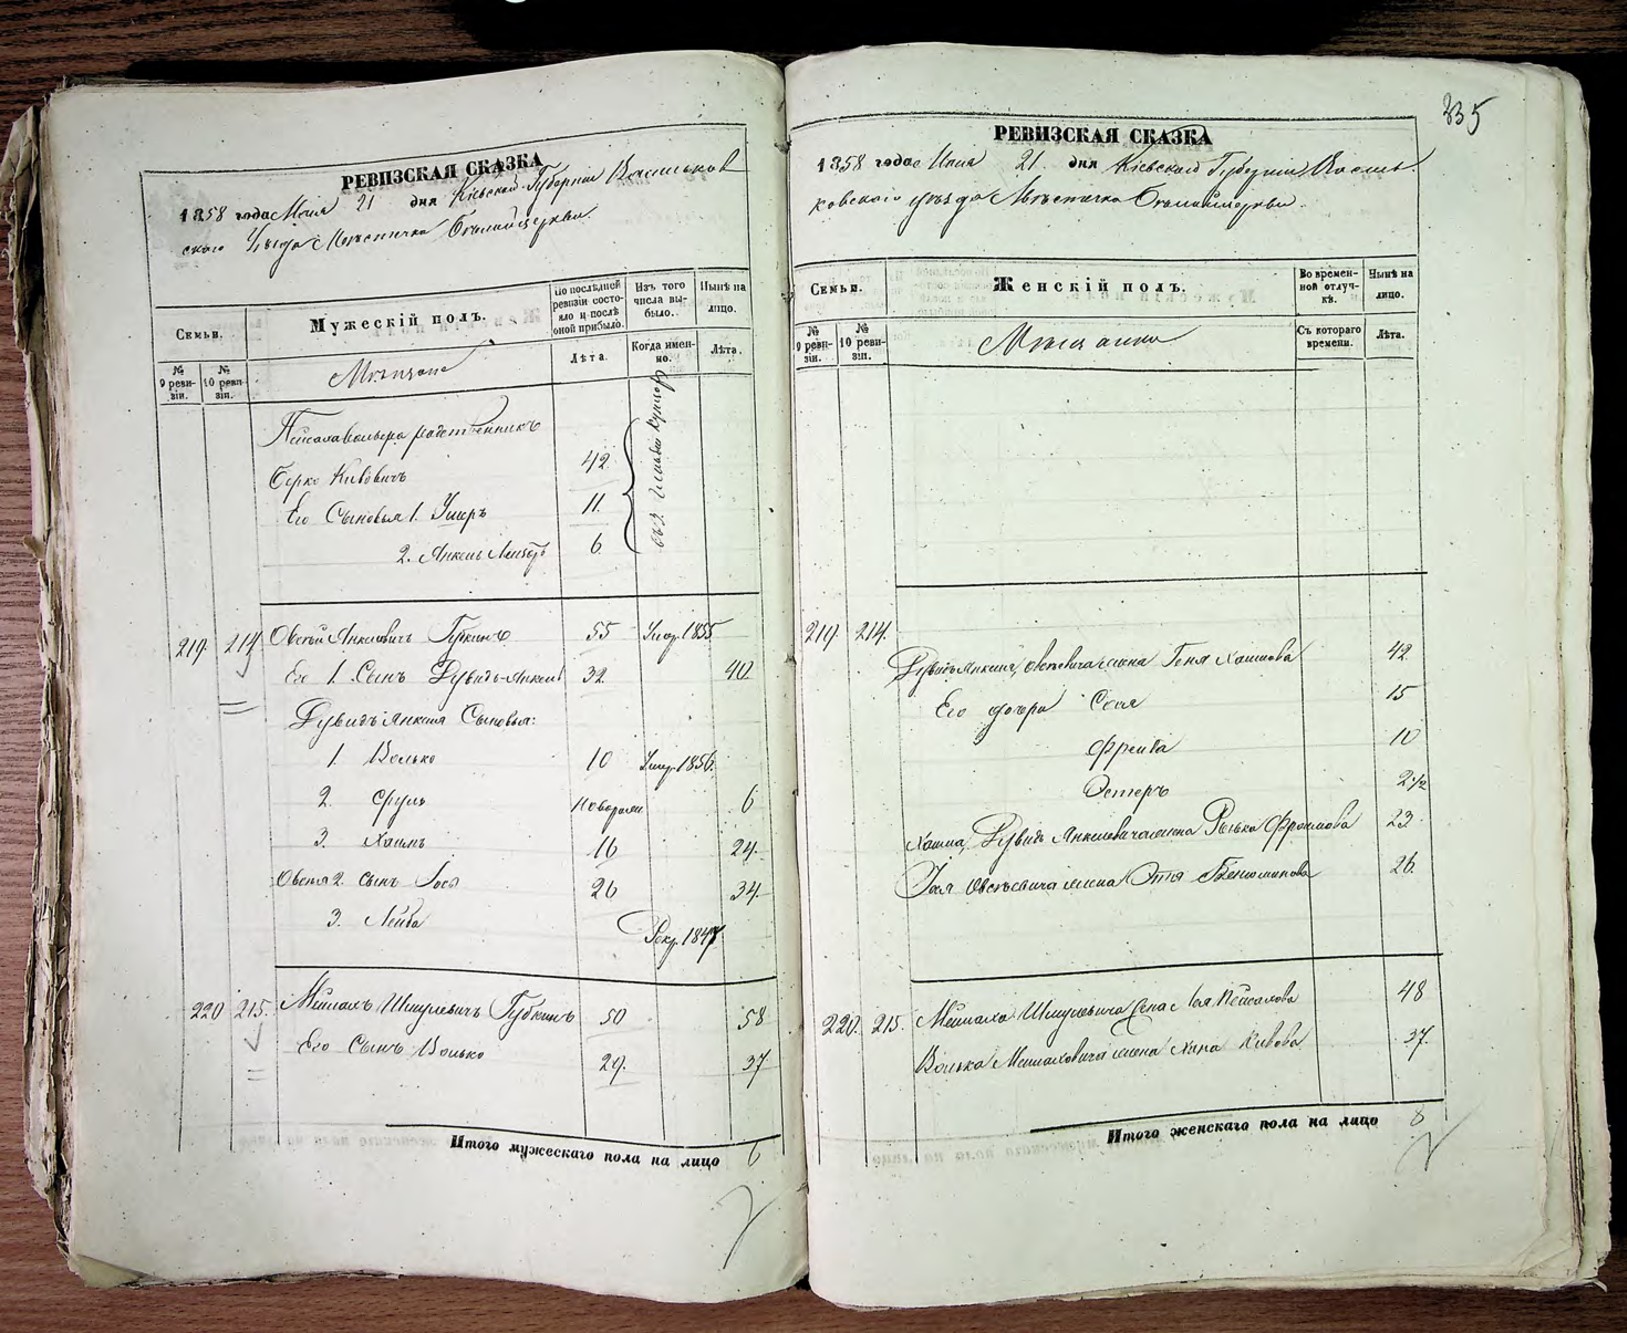 РЕВИЗСКАЯ СКАЗКА
1858 года Маія 21 дня Кіевской Губерніи Васильков
ского Уѣзда Мѣстечка Бѣлойцеркви.
Семьи.
Мужескій полъ.
По послѣдней ревизіи состояло и послѣ оной прибыло.
Изъ того числа выбыло.
Нынѣ на лицо.
№ 9 ревизіи.
№ 10 ревизіи.
Мѣщане
Лѣта.
Когда именно.
Лѣта.
родственникъ
Берко Кивовичъ 42
Его Сыновья 1. Ушеръ 11.
2. Янкель 6
219. 214 Овсей Янкелевичъ Губкинъ 55 Умер. 1855
Его 1. Сынъ Дувидъ-Янкель 32 40
Дувидъ Янкеля Сыновья:
1. Волько 10 Умер. 1856.
2. Сруль новорожд. 6
3. Хаимъ 16 24.
Овсея 2. сынъ Іось 26 34.
3. Лейба Рекр. 1847
220 215. Меилахъ Шмулевичъ Губкинъ 50 58
Его Сынъ Волько 29. 37
Итого мужескаго пола на лицо 6
335
РЕВИЗСКАЯ СКАЗКА
1858 года Маія 21 дня Кіевской Губерніи Василь
ковского уѣзда Мѣстечка Бѣлойцеркви.
Семьи.
Женскій полъ.
Во временной отлучкѣ.
Нынѣ на лицо.
№ 9 ревизіи.
№ 10 ревизіи.
Мѣщанки
Съ котораго времени.
Лѣта.
219. 214.
Дувидъ Янкеля Овсеевича жена Геня Хаимова 42
Его дочери Сося 15
Фрейда 10
Эстеръ 2 1/2
Хаима, Дувидъ Янкелевича жена Рыська Фроимова 23
Іося Овсеевича жена Этя Бенюминова 26.
220. 215. Меилаха Шмулевича жена Лея Пейсахова 48
Волька Меилаховича жена Хана Кивова 37.
Итого женскаго пола на лицо 8